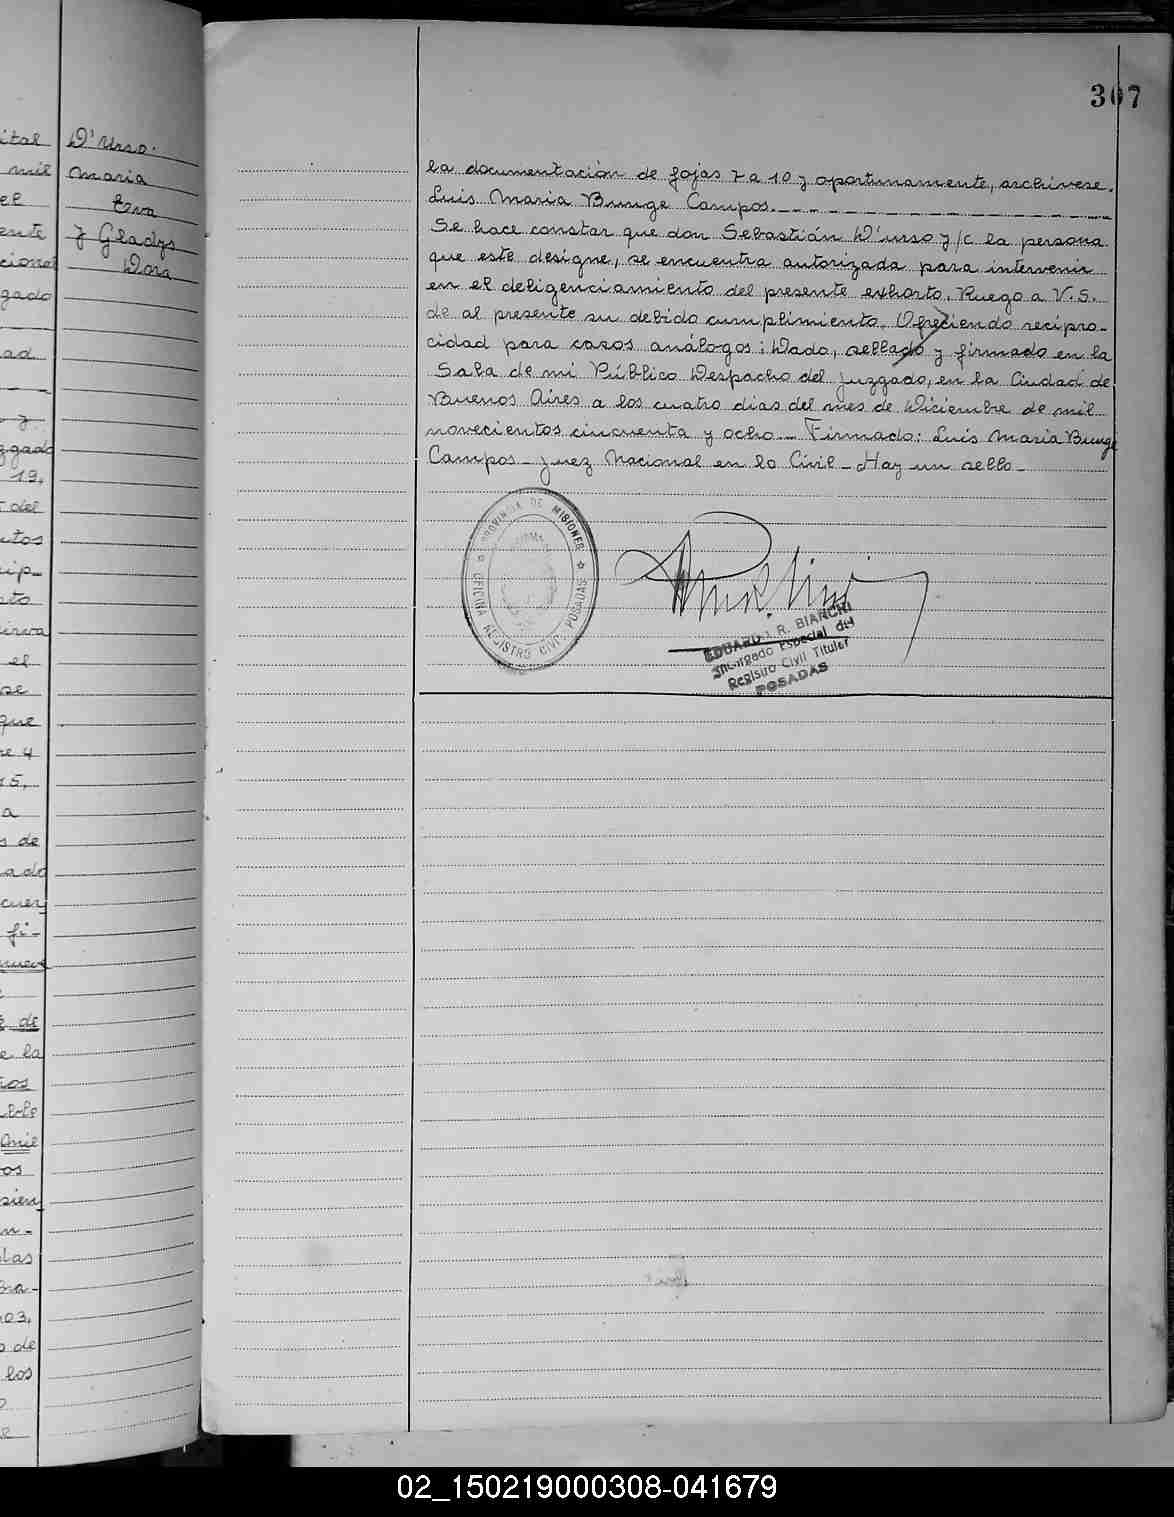 ital
mil
el
ente
cional
gado
ad
y
zgado
19,
del
utos
cip-
sto
irva
el
se
que
re 4
15,
a
s de
ado
cuer
fi-
nueve
e de
e la
ios
ble
mil
os
sien
n-
las
bra-
03,
o de
los
D'Urso.
Maria
Eva
y Gladys
Dora
307
la documentación de fojas 7 a 10 y oportunamente, archívese.
Luis Maria Bunge Campos.
Se hace constar que don Sebastián D'urso y/c la persona
que este designe, se encuentra autorizada para intervenir
en el deligenciamiento del presente exhorto. Ruego a V.S.
de al presente su debido cumplimiento. Ofreciendo recipro-
cidad para casos análogos; Dado, sellado y firmado en la
Sala de mi Público Despacho del juzgado, en la Ciudad de
Buenos Aires a los cuatro dias del mes de Diciembre de mil
novecientos cincuenta y ocho. Firmado: Luis Maria Bunge
Campos - juez Nacional en lo Civil - Hay un sello -
PROVINCIA DE MISIONES
OFICINA REGISTRO CIVIL POSADAS
EDUARDO R. BIANCHI
Encargado Especial del
Registro Civil Titular
POSADAS
02_150219000308-041679